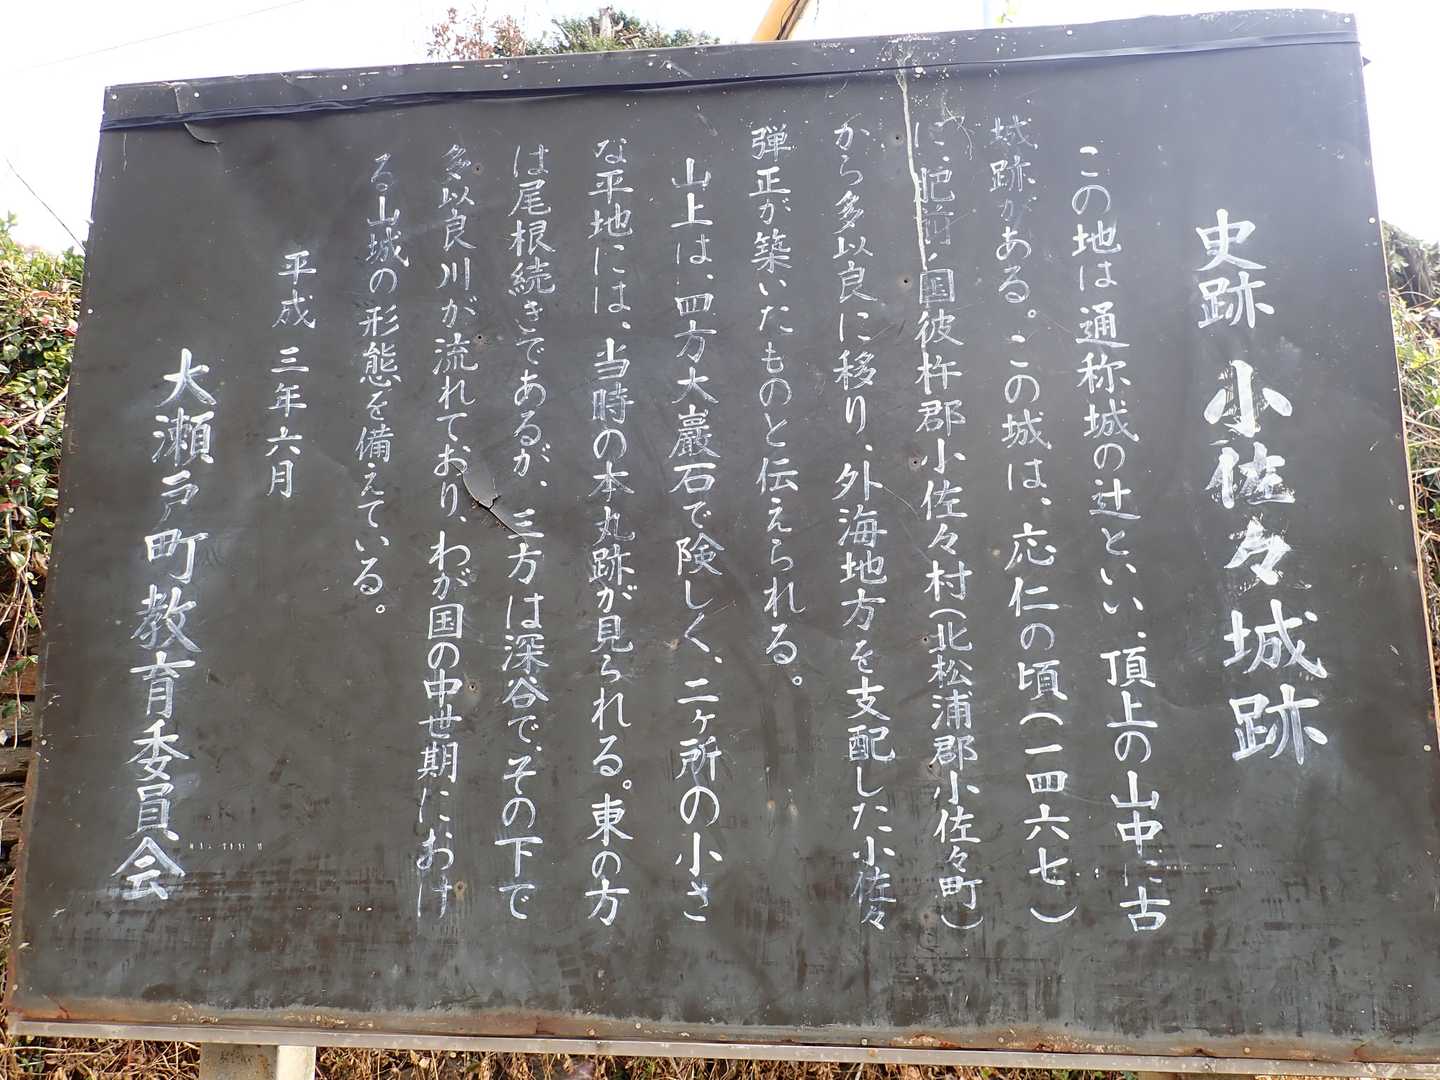 史跡 小佐々城跡
この地は通称城の辻といい、頂上の山中に古
城跡がある。この城は、応仁の頃(一四六七)
に、肥前ノ国彼杵郡小佐々村(北松浦郡小佐々町)
から多以良に移り、外海地方を支配した小佐々
弾正が築いたものと伝えられる。
山上は、四方大巌石で険しく、二ヶ所の小さ
な平地には、当時の本丸跡が見られる。東の方
は尾根続きであるが、三方は深谷で、その下で
多以良川が流れており、わが国の中世期におけ
る山城の形態を備えている。
平成 三年 六月
大瀬戸町教育委員会